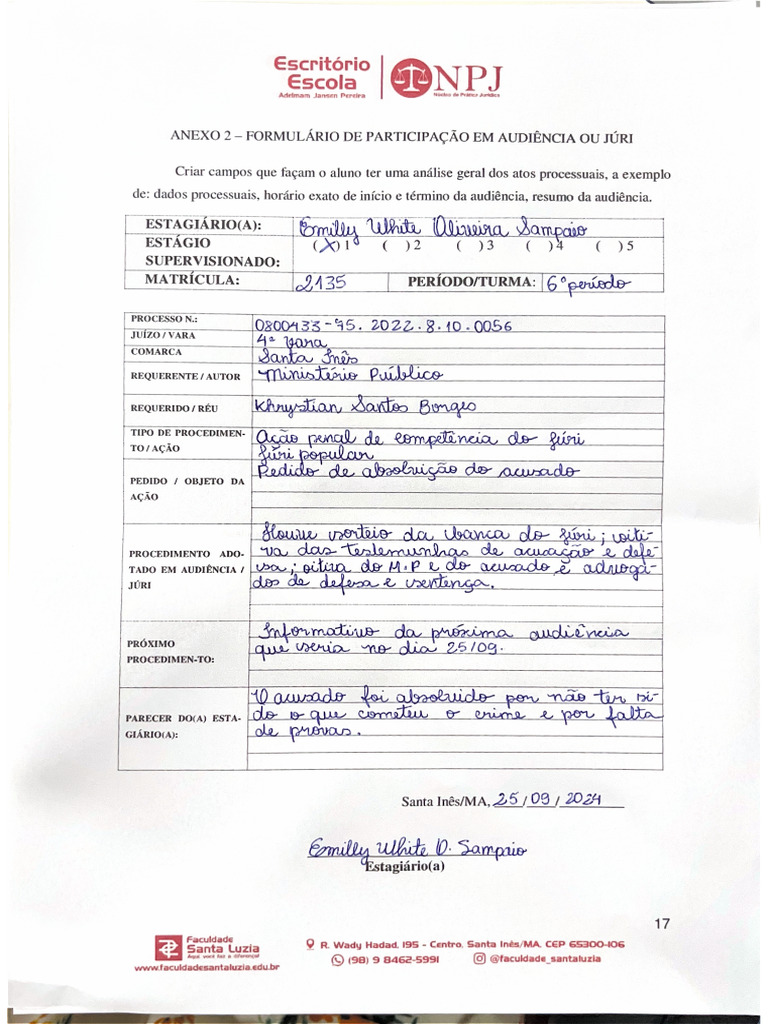 Escritório
Escola
Adrimam Jansen Pereira
NPJ
Núcleo de Prática Jurídica
ANEXO 2 – FORMULÁRIO DE PARTICIPAÇÃO EM AUDIÊNCIA OU JÚRI
Criar campos que façam o aluno ter uma análise geral dos atos processuais, a exemplo
de: dados processuais, horário exato de início e término da audiência, resumo da audiência.
ESTAGIÁRIO(A): Emilly White Oliveira Sampaio
ESTÁGIO SUPERVISIONADO: (X)1 ( )2 ( )3 ( )4 ( )5
MATRÍCULA: 2135 PERÍODO/TURMA: 6º período
PROCESSO N.: 0800433-95.2022.8.10.0056
JUÍZO / VARA 4ª vara
COMARCA Santa Inês
REQUERENTE / AUTOR Ministério Público
REQUERIDO / RÉU Khrystian Santos Borges
TIPO DE PROCEDIMEN-
TO / AÇÃO
Ação penal de competência do júri
júri popular
PEDIDO / OBJETO DA
AÇÃO
Pedido de absolvição do acusado
PROCEDIMENTO ADO-
TADO EM AUDIÊNCIA /
JÚRI
Houve sorteio da banca do júri; oiti-
va das testemunhas de acusação e defe-
sa; oitiva do M.P e do acusado e advoga-
dos de defesa e sentença.
PRÓXIMO
PROCEDIMEN-TO:
Informativo da próxima audiência
que seria no dia 25/09.
PARECER DO(A) ESTA-
GIÁRIO(A):
O acusado foi absolvido por não ter si-
do o que cometeu o crime e por falta
de provas.
Santa Inês/MA, 25/09/2024
Emilly White O. Sampaio
Estagiário(a)
17
Faculdade
Santa Luzia
Aqui, você faz a diferença!
www.faculdadesantaluzia.edu.br
R. Wady Hadad, 195 - Centro, Santa Inês/MA, CEP 65300-106
(98) 9 8462-5991 @faculdade_santaluzia